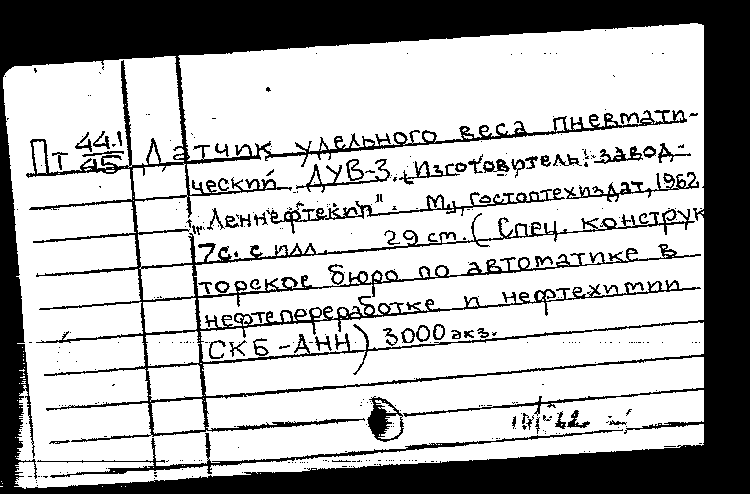 Пт 44.1/45 Датчик удельного веса пневмати-
ческий ДУВ-3. [Изготовитель: завод-
"Леннефтекип". М., Гостоптехиздат, 1962
7с. с илл. 29 см. (Спец. конструк
торское бюро по автоматике в
нефтепереработке и нефтехимии
СКБ-АНН) 3000 экз.